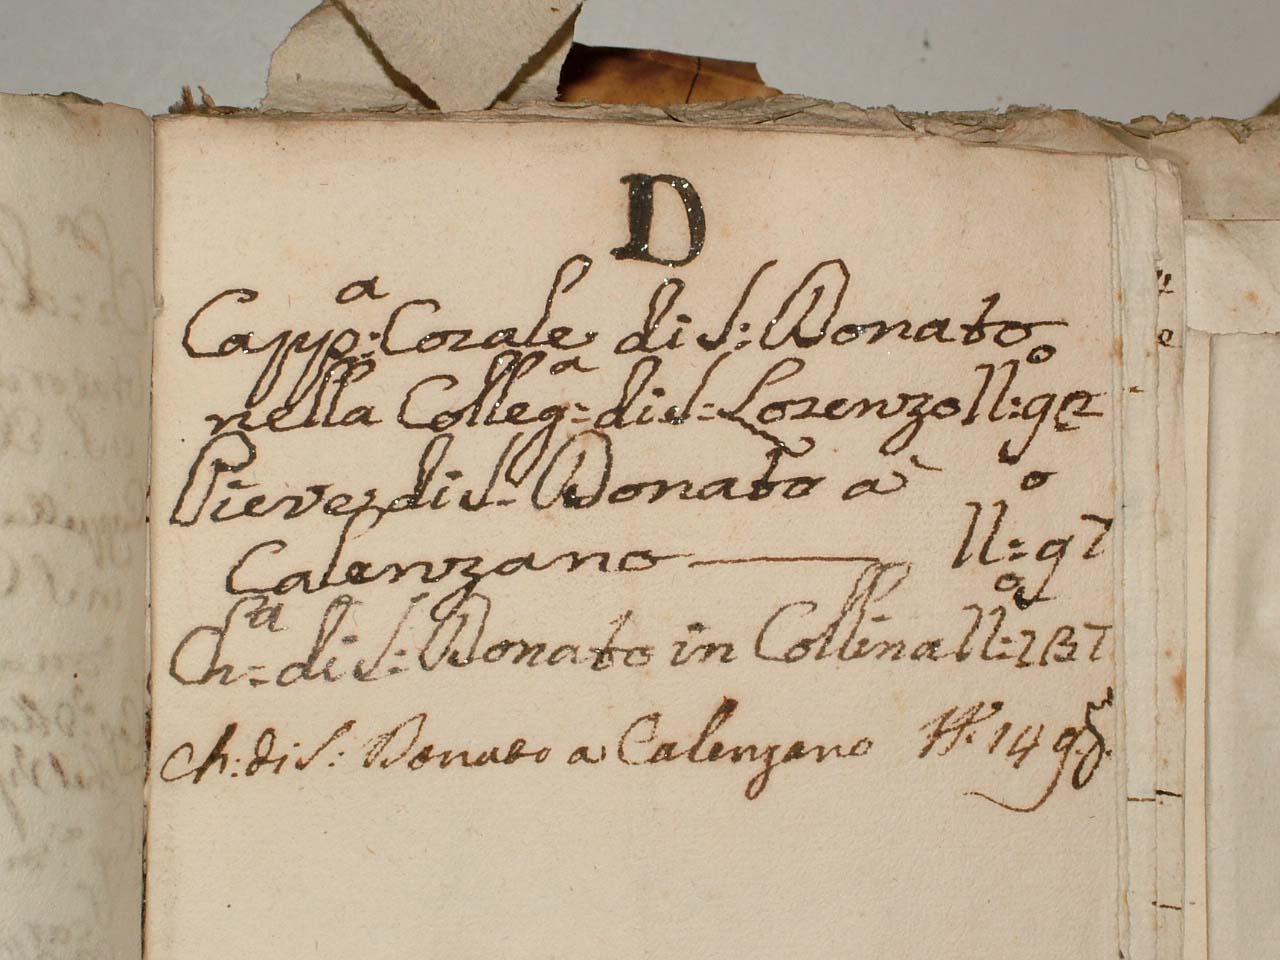 D
Capp.a Corale di S: Donato
nella Colleg=a di S= Lorenzo ll:o 92
Pieve di S= Donato à
Calenzano — ll=o 97
Ch=sa di S: Donato in Collina ll=o 137
Ch: di S: Donato a Calenzano 149